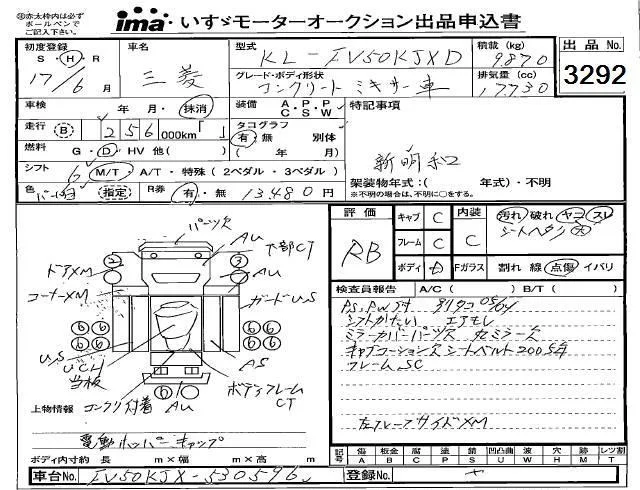 ※赤太枠内は必ず
ボールペンで
ご記入下さい。
ima いすゞモーターオークション出品申込書
初度登録 車名 型式 積載 (kg) 出品No.
S・H・R 17/6月 三菱 KL-FV50KJXD 9870 3292
グレード・ボディ形状 排気量 (cc)
コンクリートミキサー車 17730
車検 年 月・抹消 装備 A・P・P C・S・W 特記事項
走行 B 256 000km「 」 タコグラフ 有・無 別体
燃料 G・D・HV 他( ) ( 年 月)
新明和
シフト 6 M/T・A/T・特殊 (2ペダル・3ペダル)
架装物年式:( 年式)・不明
※不明の場合は、不明に○をする。
色 指定 R券 有・無 13480円
評価 RB
キャブ C 内装 C 汚れ 破れ ヤコ スレ
シートヘタリ 大
フレーム C
ボディ D Fガラス 割れ 線 点傷 イバリ
検査員報告 A/C ( ) B/T ( )
PS,PW付 タコ 05/04
シフトかたい エアモレ
ミラーカバーパーツ欠 左ミラー欠
キャブコーション欠 シートベルト2005年
フレームSC
左フレームサイドXM
パーツ欠
AU
下部CT
ドアXM
AU
コーナーXM
ガードUS
US
UCH
当板
AS
ボディフレーム
CT
AU
上物情報 コンクリ付着
電動ホッパーキャップ
ボディ内寸約 長 m×幅 m×高 m
記号 傷 A 板金 B 腐 C 塗 P 錆 S 凹凸曲 U 波 W 穴 H 跡 M レツ割 T
車台No. FV50KJX-530596 登録No.